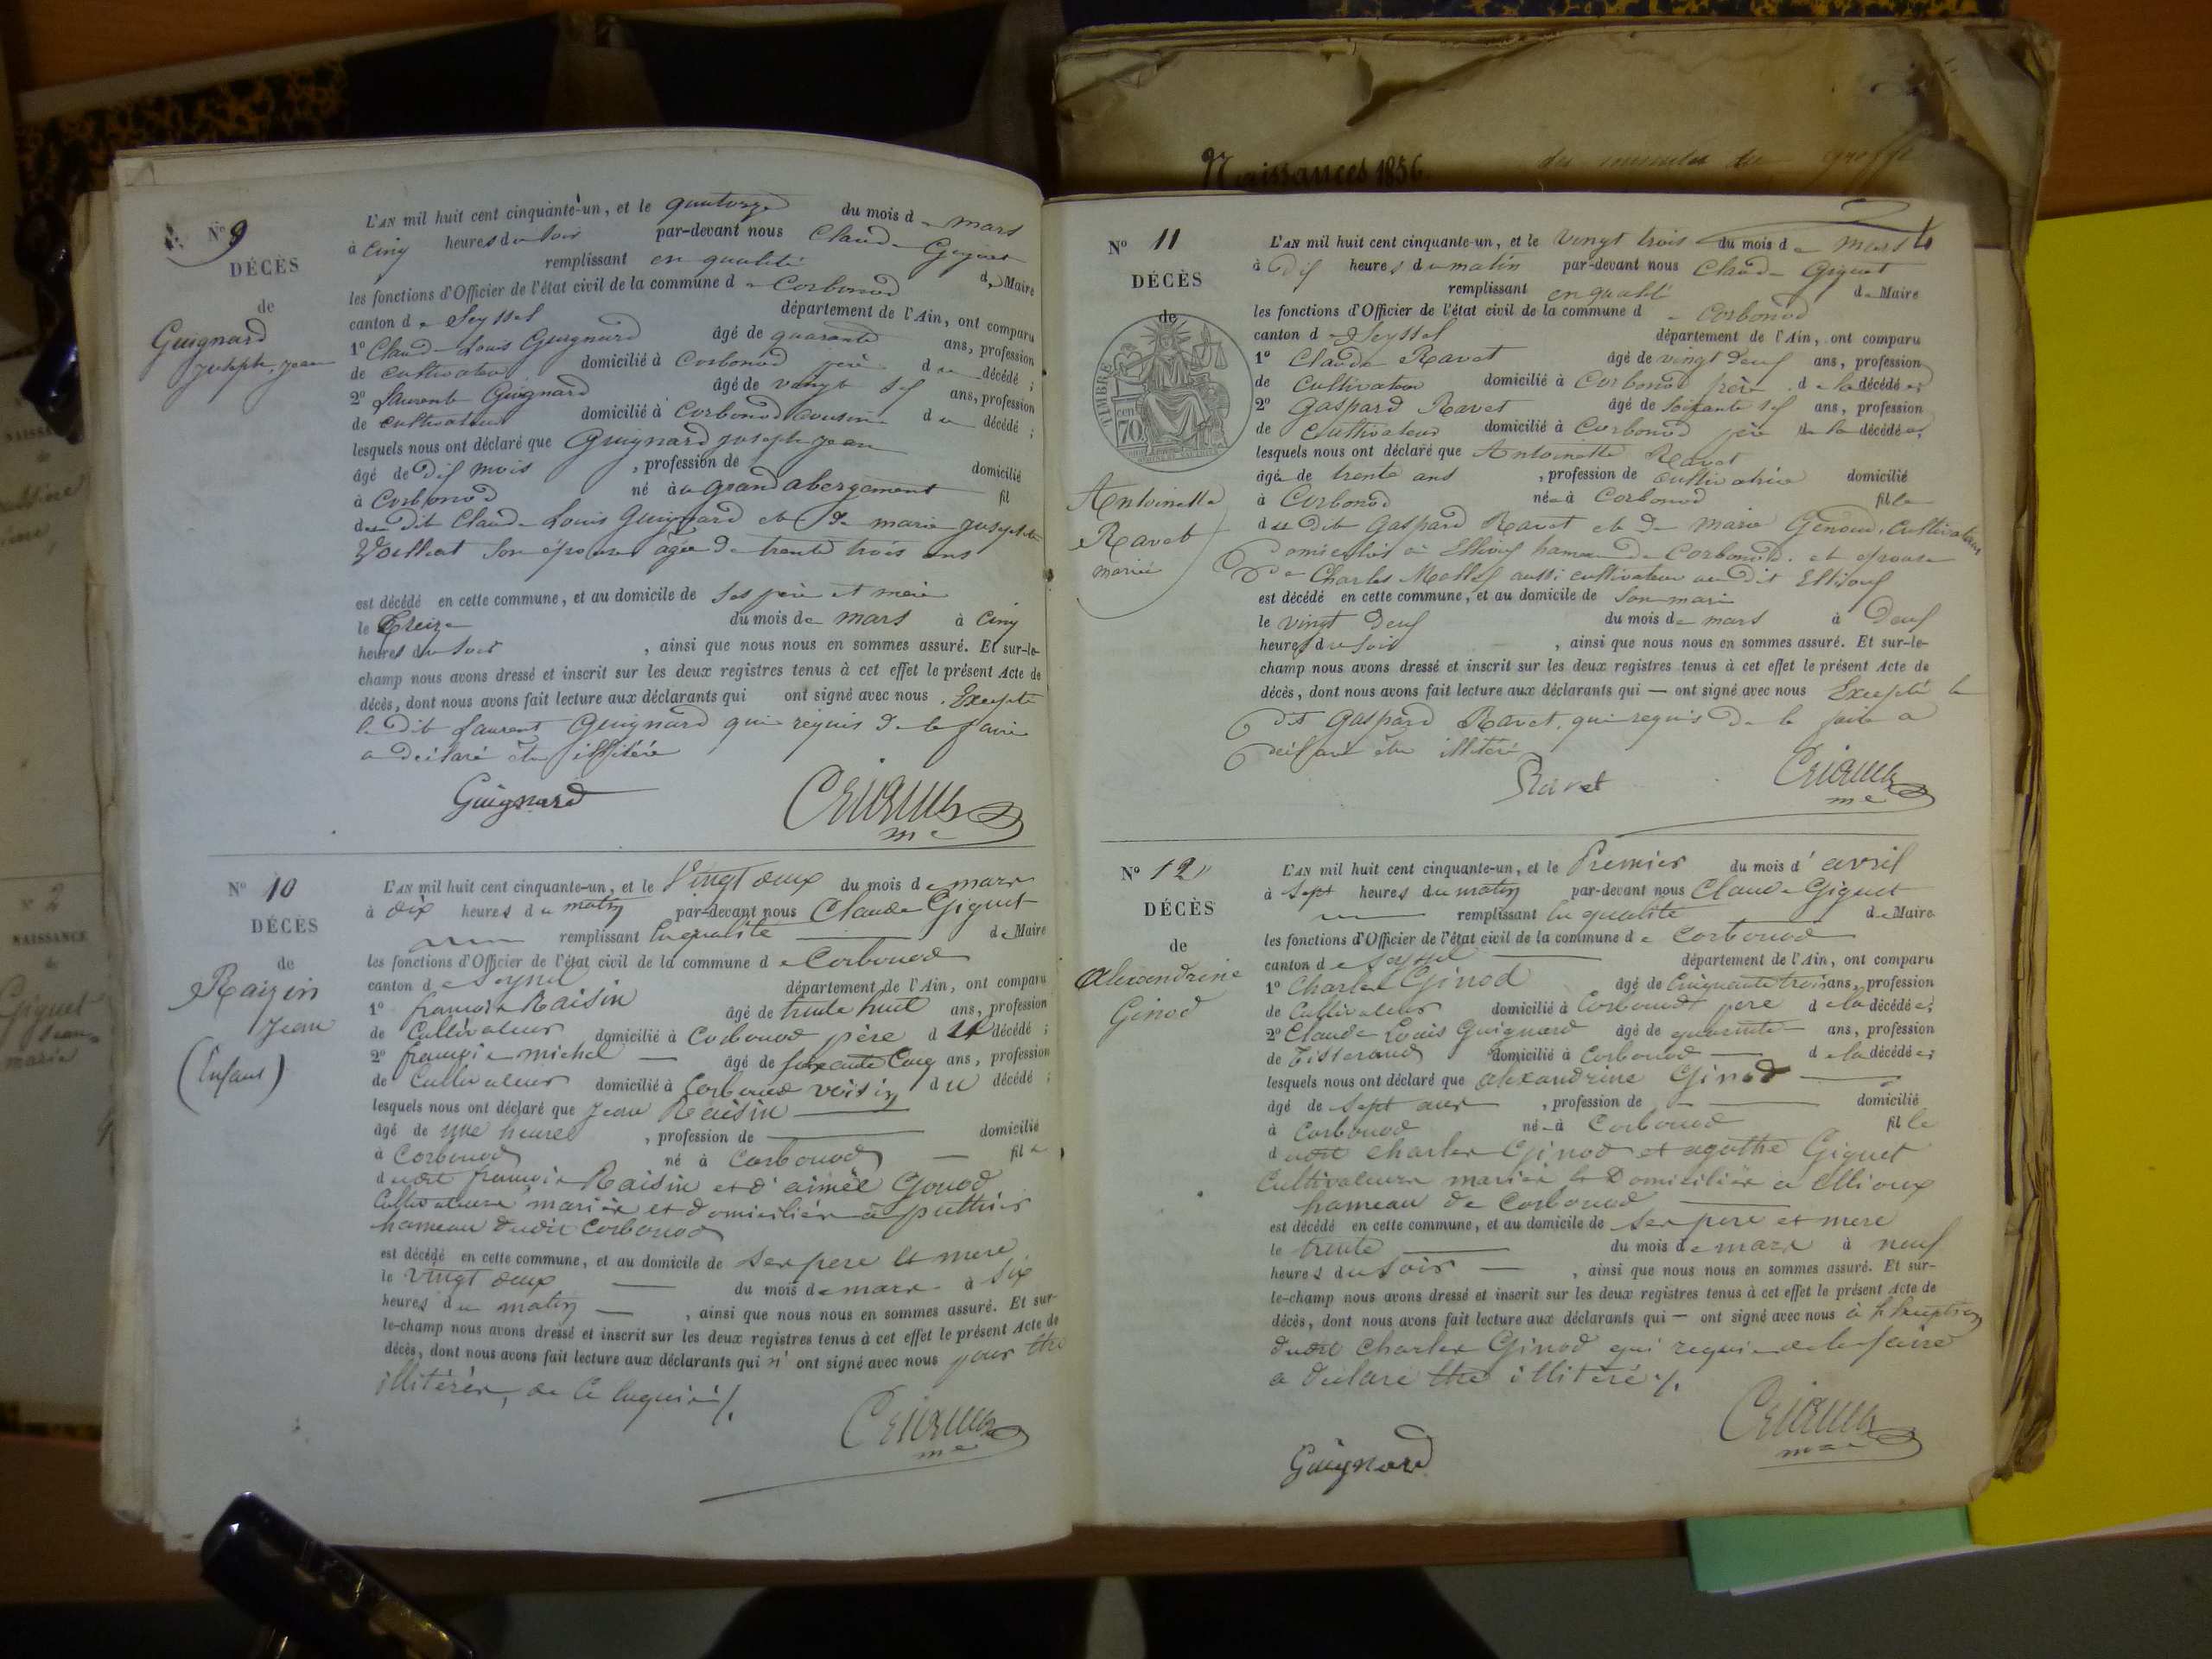 Naissances 1856
N° 9
DÉCÈS
de
Guignard
joseph, jean
L'AN mil huit cent cinquante-un, et le quatorze du mois de mars
à cinq heures du soir par-devant nous Claude Giguet
remplissant en qualité de Maire
les fonctions d'Officier de l'état civil de la commune de Corbonod
canton de Seyssel département de l'Ain, ont comparu
1° Claude Louis Guignard âgé de quarante ans, profession
de cultivateur domicilié à Corbonod père du décédé ;
2° Laurent Guignard âgé de vingt sif ans, profession
de cultivateur domicilié à Corbonod cousin du décédé ;
lesquels nous ont déclaré que Guignard joseph jean
âgé de dif mois , profession de domicilié
à Corbonod né au grand abergement fil
du dit Claude Louis Guignard et de marie josephte
son épouse âgée de trente trois ans
est décédé en cette commune, et au domicile de ses père et mère
le treize du mois de mars à cinq
heures du soir , ainsi que nous nous en sommes assuré. Et sur-le-
champ nous avons dressé et inscrit sur les deux registres tenus à cet effet le présent Acte de
décès, dont nous avons fait lecture aux déclarants qui ont signé avec nous . Excepté
le dit Laurent Guignard qui requis de le faire
a déclaré être illitéré
Guignard
me
N° 10
DÉCÈS
de
Raizin
Jean
(Enfant)
L'AN mil huit cent cinquante-un, et le Vingt deux du mois de mars
à dix heures du matin par-devant nous Claude Giguet
remplissant en qualité de Maire
les fonctions d'Officier de l'état civil de la commune de Corbonod
canton de Seyssel département de l'Ain, ont comparu
1° françois Raisin âgé de trente huit ans, profession
de Cultivateur domicilié à Corbonod père du décédé ;
2° françois michel âgé de soixante Cinq ans, profession
de Cultivateur domicilié à Corbonod voisin du décédé ;
lesquels nous ont déclaré que Jean Raisin
âgé de une heure , profession de domicilié
à Corbonod né à Corbonod fil
dudit françois Raisin et d'aimée Gonod
Cultivateurs mariés et domiciliés à puthier
hameau dudit Corbonod
est décédé en cette commune, et au domicile de ses pere et mere
le vingt deux du mois de mars à six
heures du matin , ainsi que nous nous en sommes assuré. Et sur-
le-champ nous avons dressé et inscrit sur les deux registres tenus à cet effet le présent Acte de
décès, dont nous avons fait lecture aux déclarants qui n'ont signé avec nous pour être
illitérés, de ce enquis ./.
me
N° 11
DÉCÈS
de
TIMBRE
70 cen
Antoinette
Ravet
mariée
4
L'AN mil huit cent cinquante-un, et le vingt trois du mois de mars
à Dif heures du matin par-devant nous Claude Giguet
remplissant en qualité de Maire
les fonctions d'Officier de l'état civil de la commune de Corbonod
canton de Seyssel département de l'Ain, ont comparu
1° Claude Ravet âgé de vingt deuf ans, profession
de Cultivateur domicilié à Corbonod frère de la décédée ;
2° Gaspard Ravet âgé de soifante sif ans, profession
de Cultivateur domicilié à Corbonod père de la décédée ;
lesquels nous ont déclaré que Antoinette Ravet
âgée de trente ans , profession de cultivatrice domicilié
à Corbonod née à Corbonod fille
du dit Gaspard Ravet et de marie Genoud, Cultivateurs
Domiciliés à Elliouf hameau de Corbonod. et epouse
de Charles Mollef aussi cultivateur au dit Elliouf
est décédé en cette commune, et au domicile de son mari
le vingt deuf du mois de mars à deuf
heures du soir , ainsi que nous nous en sommes assuré. Et sur-le-
champ nous avons dressé et inscrit sur les deux registres tenus à cet effet le présent Acte de
décès, dont nous avons fait lecture aux déclarants qui — ont signé avec nous Excepté le
dit Gaspard Ravet, qui requis de le faire a
déclaré être illitéré
Ravet
me
N° 12
DÉCÈS
de
alexandrine
Ginod
L'AN mil huit cent cinquante-un, et le Premier du mois d'avril
à sept heures du matin par-devant nous Claude Giguet
remplissant en qualité de Maire
les fonctions d'Officier de l'état civil de la commune de Corbonod
canton de Seyssel département de l'Ain, ont comparu
1° Charles Ginod âgé de Cinquante trois ans, profession
de Cultivateur domicilié à Corbonod père de la décédée ;
2° Claude Louis Guignard âgé de quarante ans, profession
de Tisserand domicilié à Corbonod — de la décédée ;
lesquels nous ont déclaré que alexandrine Ginod
âgé de sept ans , profession de — domicilié
à Corbonod née à Corbonod fille
dudit Charles Ginod et agathe Giguet
Cultivateurs mariés et Domiciliés a Ellioux
hameau de Corbonod
est décédé en cette commune, et au domicile de ses pere et mere
le trente du mois de mars à neuf
heures du soir — , ainsi que nous nous en sommes assuré. Et sur-
le-champ nous avons dressé et inscrit sur les deux registres tenus à cet effet le présent Acte de
décès, dont nous avons fait lecture aux déclarants qui — ont signé avec nous à l'exception
dudit Charles Ginod qui requis de le faire
a déclare être illitéré ./.
Guignard
N° 2
NAISSANCE
de
Giguet
Jean
marie